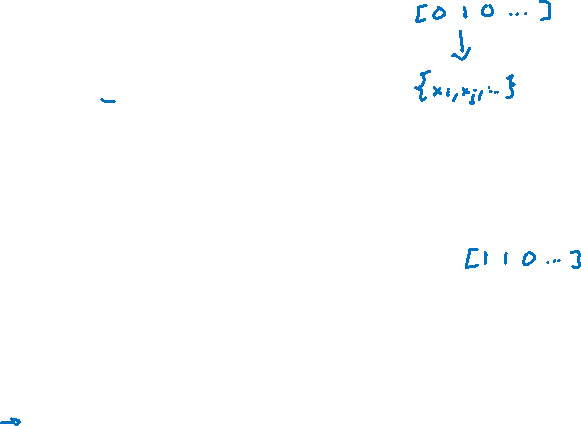 [0 1 0 ...]
↓
{xi, xj, ...}
-
[1 1 0 ...]
→